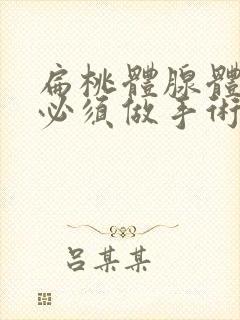 扁桃體腺體
必須做手術
吕某某